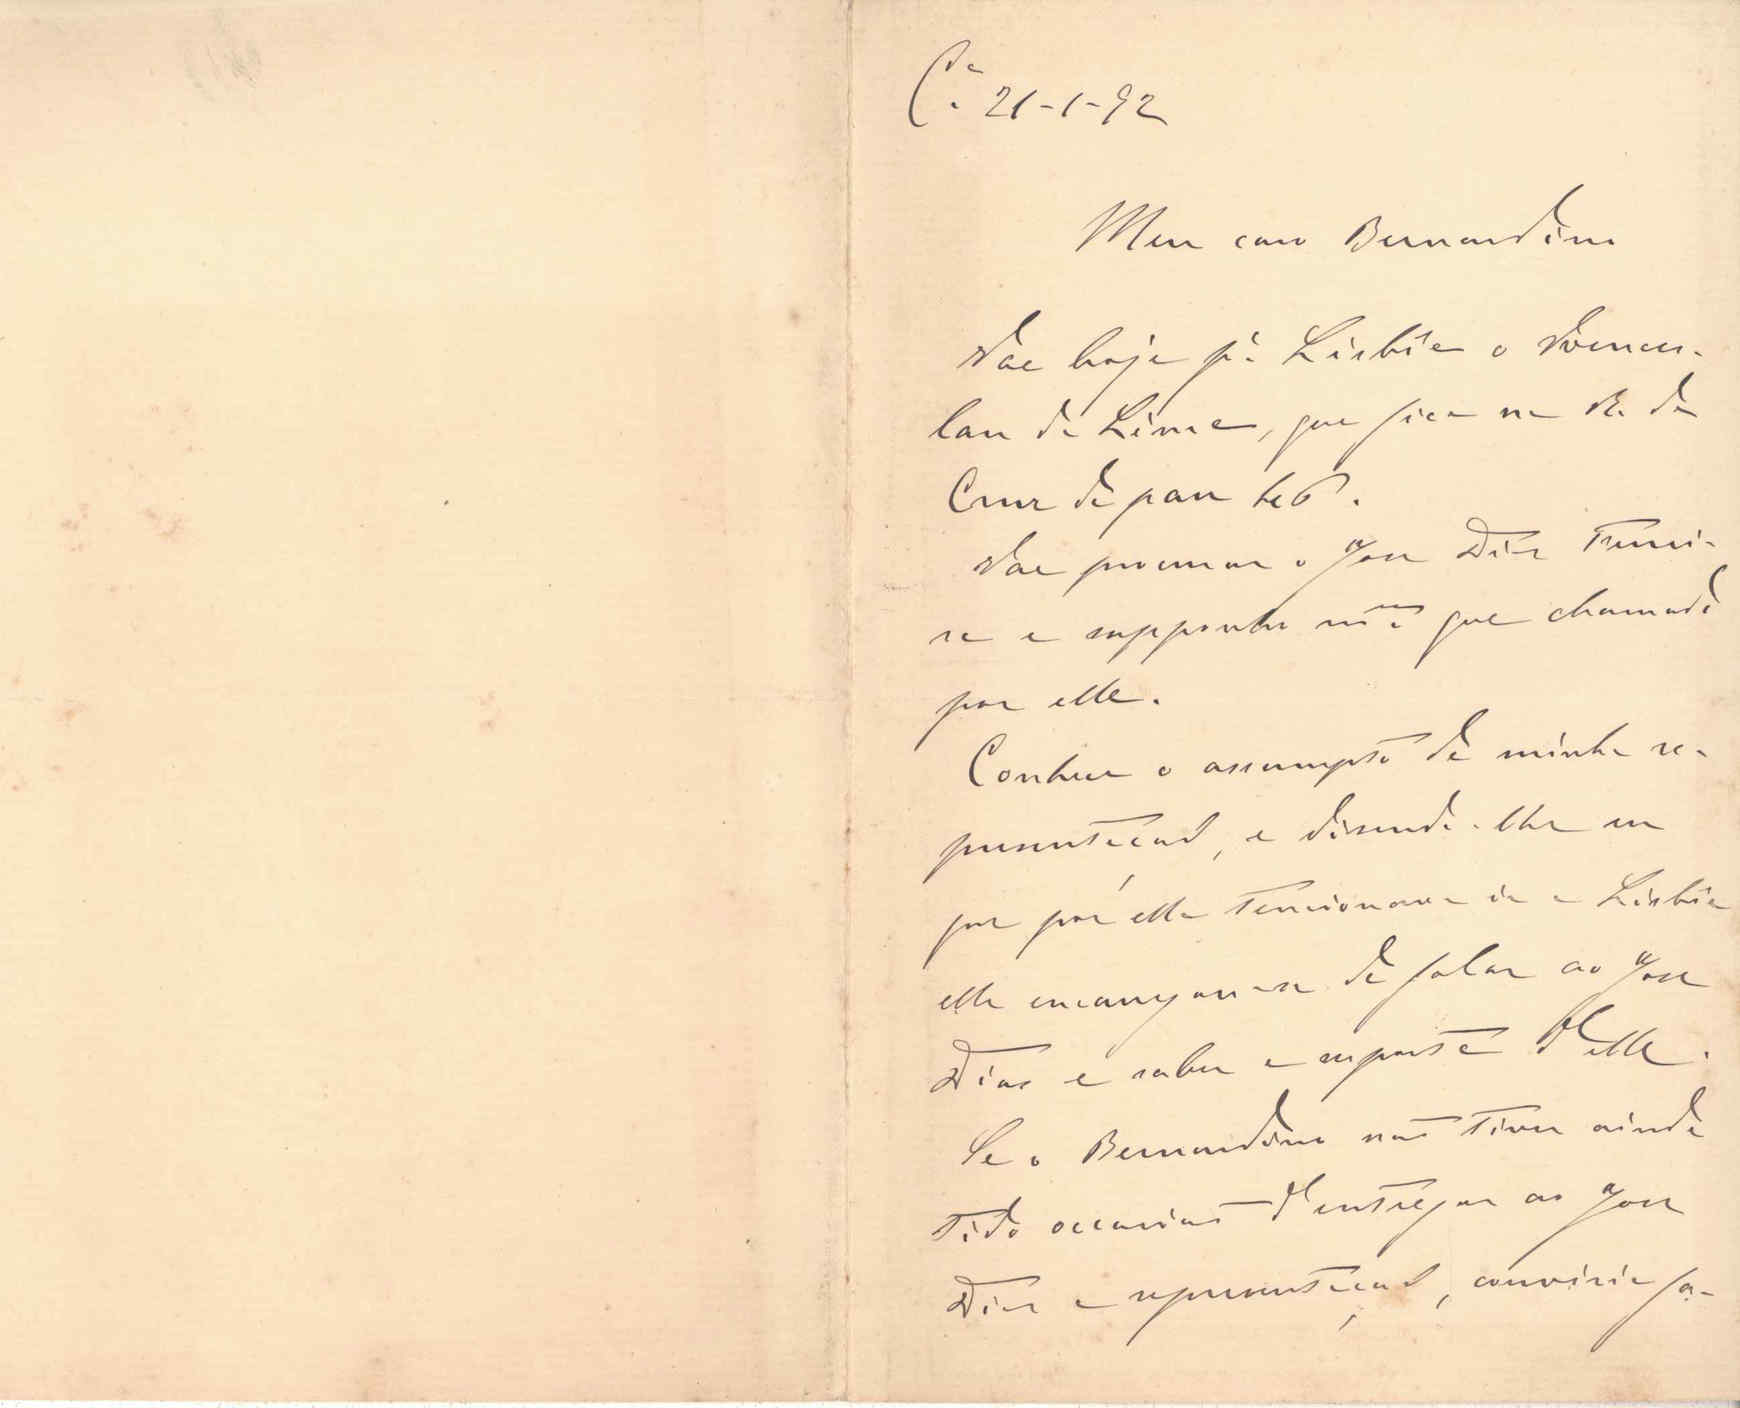 C.ª 21-1-92
Meu caro Bernardino
Vae hoje p.ª Lisbôa o Vences-
lau de Lima, que fica na R. da
Cruz de pau
Vae procurar o José Dias Ferrei-
ra e supponho m.mo que chamado
por elle.
Conhece o assumpto da minha re-
presentação, e dizendo-lhe eu
que por ella tencionava ir a Lisbôa
elle encarregou-se de falar ao José
Dias e saber a resposta d'elle.
Se o Bernardino não tiver ainda
tido occasião d'entregar ao José
Dias a representação, conviria fa-